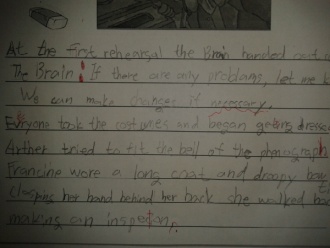 At the first rehearsal the Brain handed out
The Brain! If there are only problams, let me k
We can make changes if necessery.
Evryone took the costumes and began geting dress
Arther tried to fit the bell of the phonograph
Francine wore a long coat and droopy bow
Clasping her hand behind her back she walked bac
making an inspetion,